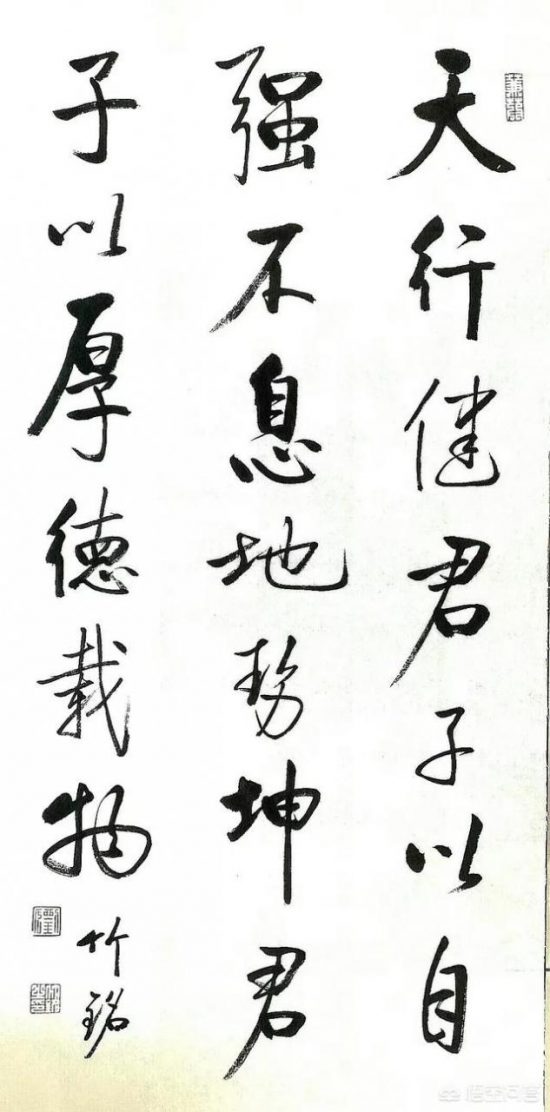 天行健君子以自
强不息地势坤君
子以厚德载物
竹铭
悟空问答